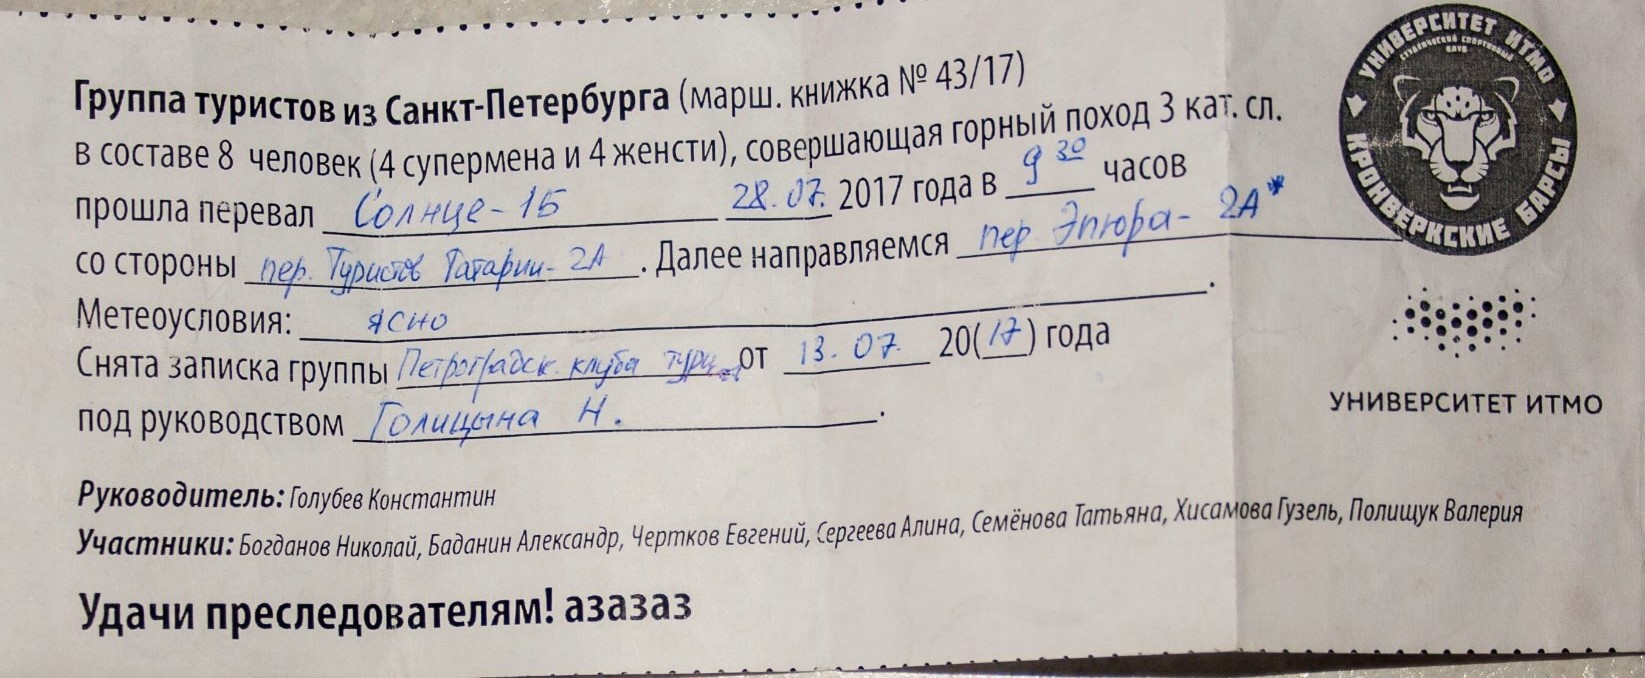 Группа туристов из Санкт-Петербурга (марш. книжка № 43/17)
в составе 8 человек (4 супермена и 4 женсти), совершающая горный поход 3 кат. сл.
прошла перевал Солнце-1Б 28.07. 2017 года в 9 30 часов
со стороны пер. Туристов Татарии-2А. Далее направляемся пер. Эпюра- 2А*
Метеоусловия: ясно.
Снята записка группы Петроградск. клуба тур от 13.07. 20(17) года
под руководством Голицына Н..
Руководитель: Голубев Константин
Участники: Богданов Николай, Баданин Александр, Чертков Евгений, Сергеева Алина, Семёнова Татьяна, Хисамова Гузель, Полищук Валерия
Удачи преследователям! азазаз
УНИВЕРСИТЕТ ИТМО
СТУДЕНЧЕСКИЙ СПОРТИВНЫЙ
КЛУБ
КРОНВЕРКСКИЕ БАРСЫ
УНИВЕРСИТЕТ ИТМО